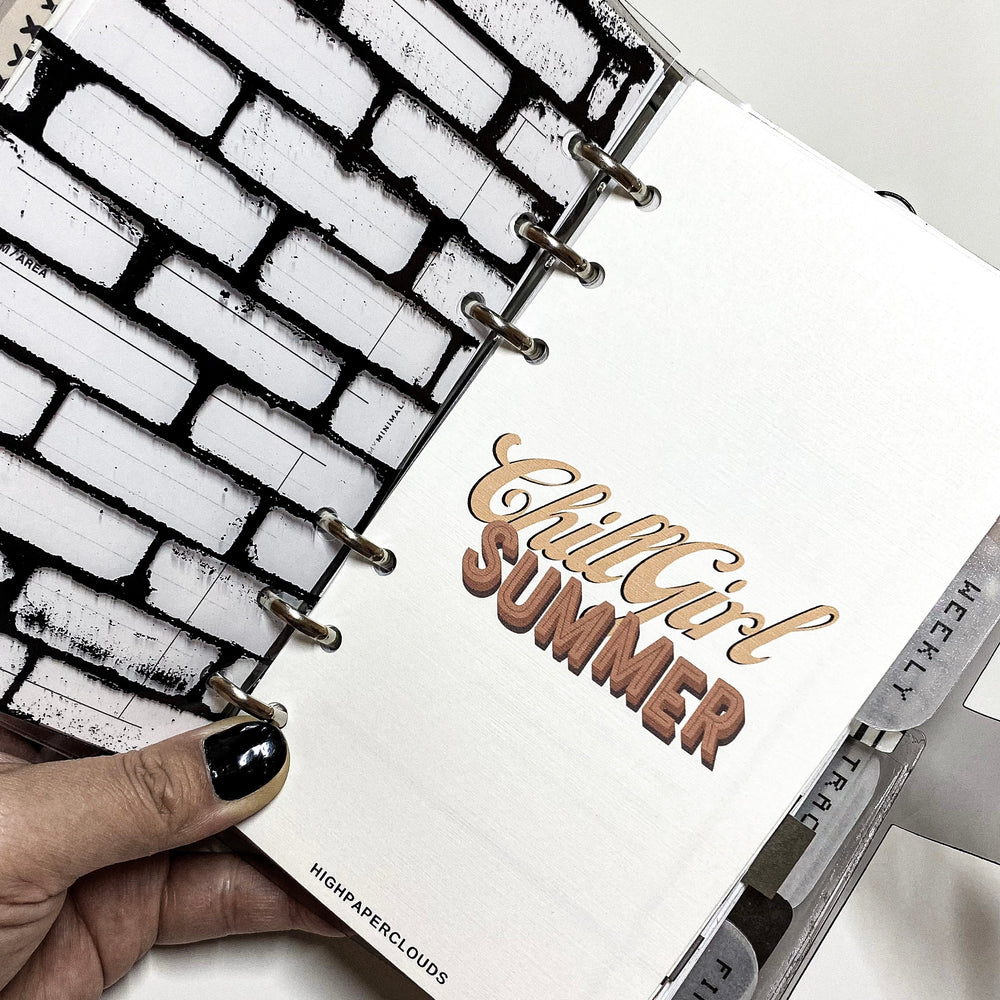 M / AREA
MINIMAL
Chill Girl
SUMMER
HIGHPAPERCLOUDS
WEEKLY